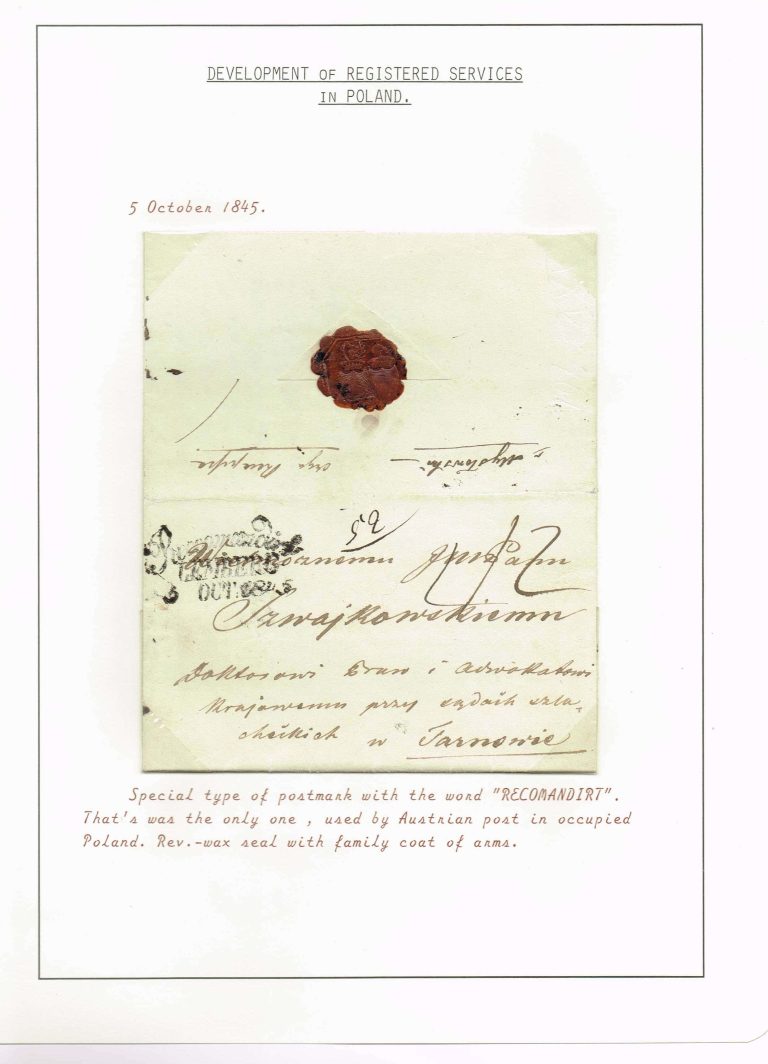 DEVELOPMENT OF REGISTERED SERVICES
IN POLAND.
5 October 1845.
25
Wielmożnemu JMć Panu
Szwajkowskiemu
Doktorowi Praw i Adwokatowi
Krajowemu przy sądach szla-
checkich w Tarnowie
Recomandirt
LEMBERG
OCT:
Special type of postmark with the word "RECOMANDIRT".
That's was the only one , used by Austrian post in occupied
Poland. Rev.-wax seal with family coat of arms.